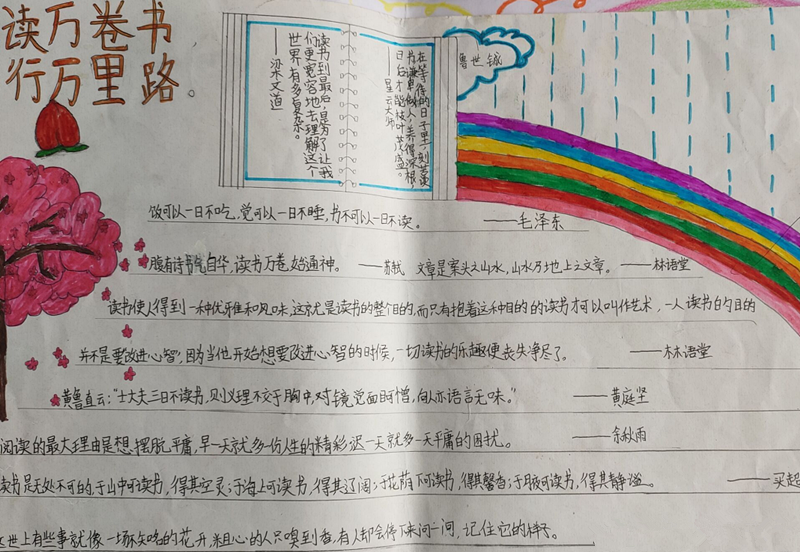 读万卷书
行万里路。
读书到最后,是为了让我
们更宽容地去理解这个
世界有多复杂。
——梁文道
在等待的日子里,刻苦读
书,谦卑做人,养得深根,
日后才能枝叶茂盛。
——星云大师
鲁世钺
饭可以一日不吃,觉可以一日不睡,书不可以一日不读。 ——毛泽东
腹有诗书气自华,读书万卷始通神。 ——苏轼 文章是案头之山水,山水乃地上之文章。 ——林语堂
读书使人得到一种优雅和风味,这就是读书的整个目的,而只有抱着这种目的的读书才可以叫作艺术,一人读书的目的
并不是要改进心智",因为当他开始想要改进心智的时候,一切读书的乐趣便丧失净尽了。 ——林语堂
黄鲁直云:"士大夫三日不读书,则义理不交于胸中,对镜觉面目可憎,向人亦语言无味。" ——黄庭坚
阅读的最大理由是想摆脱平庸,早一天就多一份人生的精彩,迟一天就多一天平庸的困扰。 ——余秋雨
读书是无处不可的,于山中可读书,得其空灵;于海上可读书,得其辽阔;于花荫下可读书,得其馨香;于月夜可读书,得其静谧。 ——买超
这世上有些事就像一场不知名的花开,粗心的人只嗅到香,有人却会停下来问一问,记住它的样子。